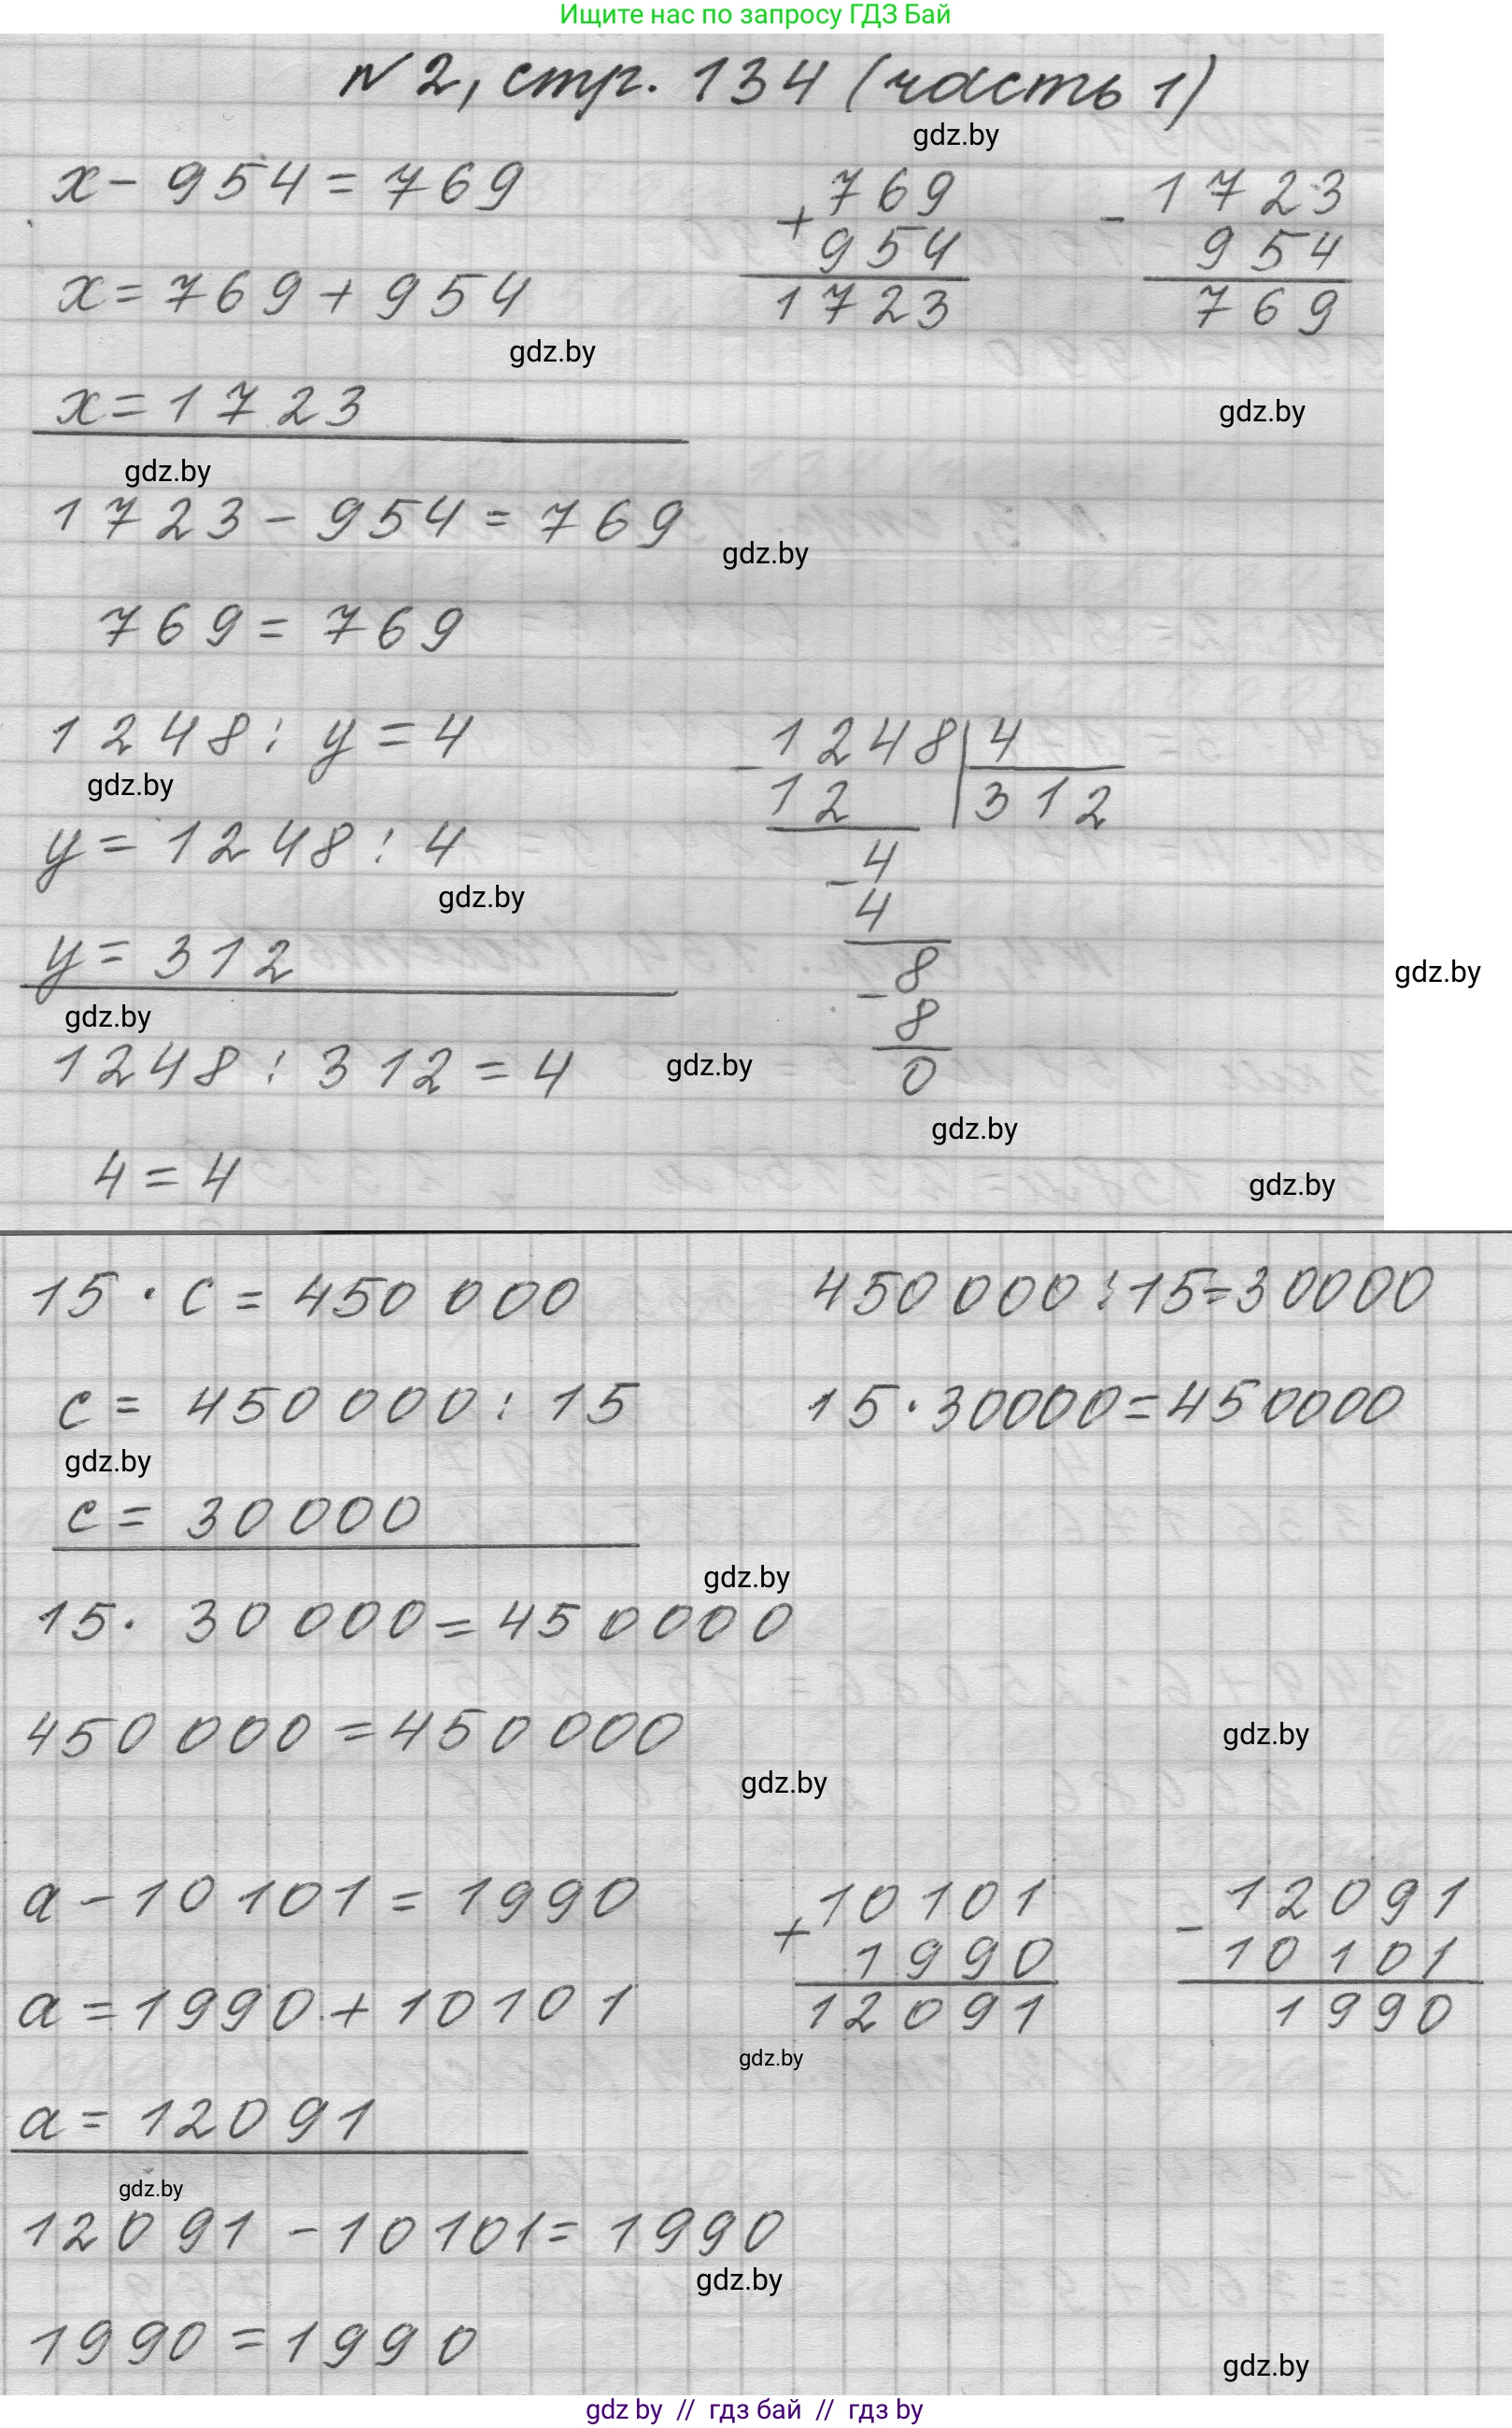 Ищите нас по запросу ГДЗ Бай
№2, стр. 134 (часть 1)
gdz.by
x - 954 = 769
x = 769 + 954
gdz.by
x = 1723
gdz.by
1723 - 954 = 769
769 = 769
+ 769
954
1723
- 1723
954
769
gdz.by
gdz.by
1248 : y = 4
gdz.by
y = 1248 : 4
gdz.by
y = 312
gdz.by
1248 : 312 = 4
4 = 4
- 1248 | 4
12 | 312
- 4
4
- 8
8
0
gdz.by
gdz.by
gdz.by
gdz.by
15 · c = 450 000
c = 450 000 : 15
gdz.by
c = 30 000
15 · 30 000 = 450000
450 000 = 450 000
450 000 : 15 = 30000
15 · 30000 = 450000
gdz.by
gdz.by
gdz.by
a - 10 101 = 1990
a = 1990 + 10101
a = 12091
gdz.by
12091 - 10101 = 1990
1990 = 1990
+ 10101
1990
12091
gdz.by
- 12091
10101
1990
gdz.by
gdz.by
gdz by // гдз бай // гдз by